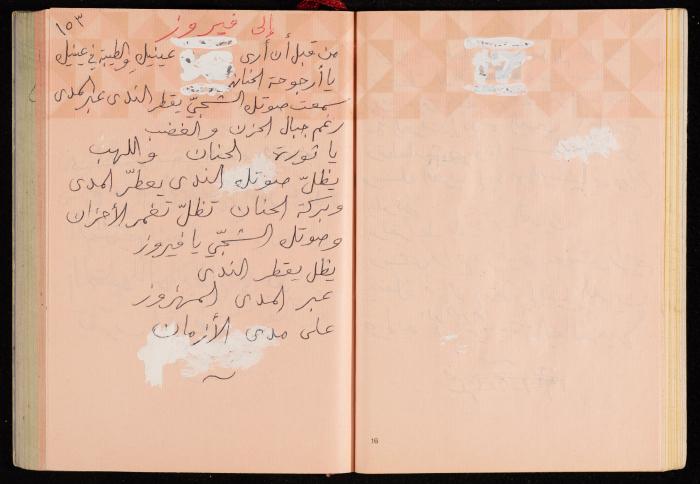 ١٥٣
إلى فيروز
من قبل أن أرى عينيك والطيبة في عينيك
يا أرجوحة الحنان
سمعت صوتك الشجيّ يقطر الندى عبر المدى
رغم جبال الحزن والغضب
يا ثورة الحنان واللهب
يظلّ صوتك الندى يعطّر المدى
وبركة الحنان تظلّ تغمر الأحزان
وصوتك الشجيّ يا فيروز
يظل يقطر الندى
عبر المدى المهزوز
على مدى الأزمان
16